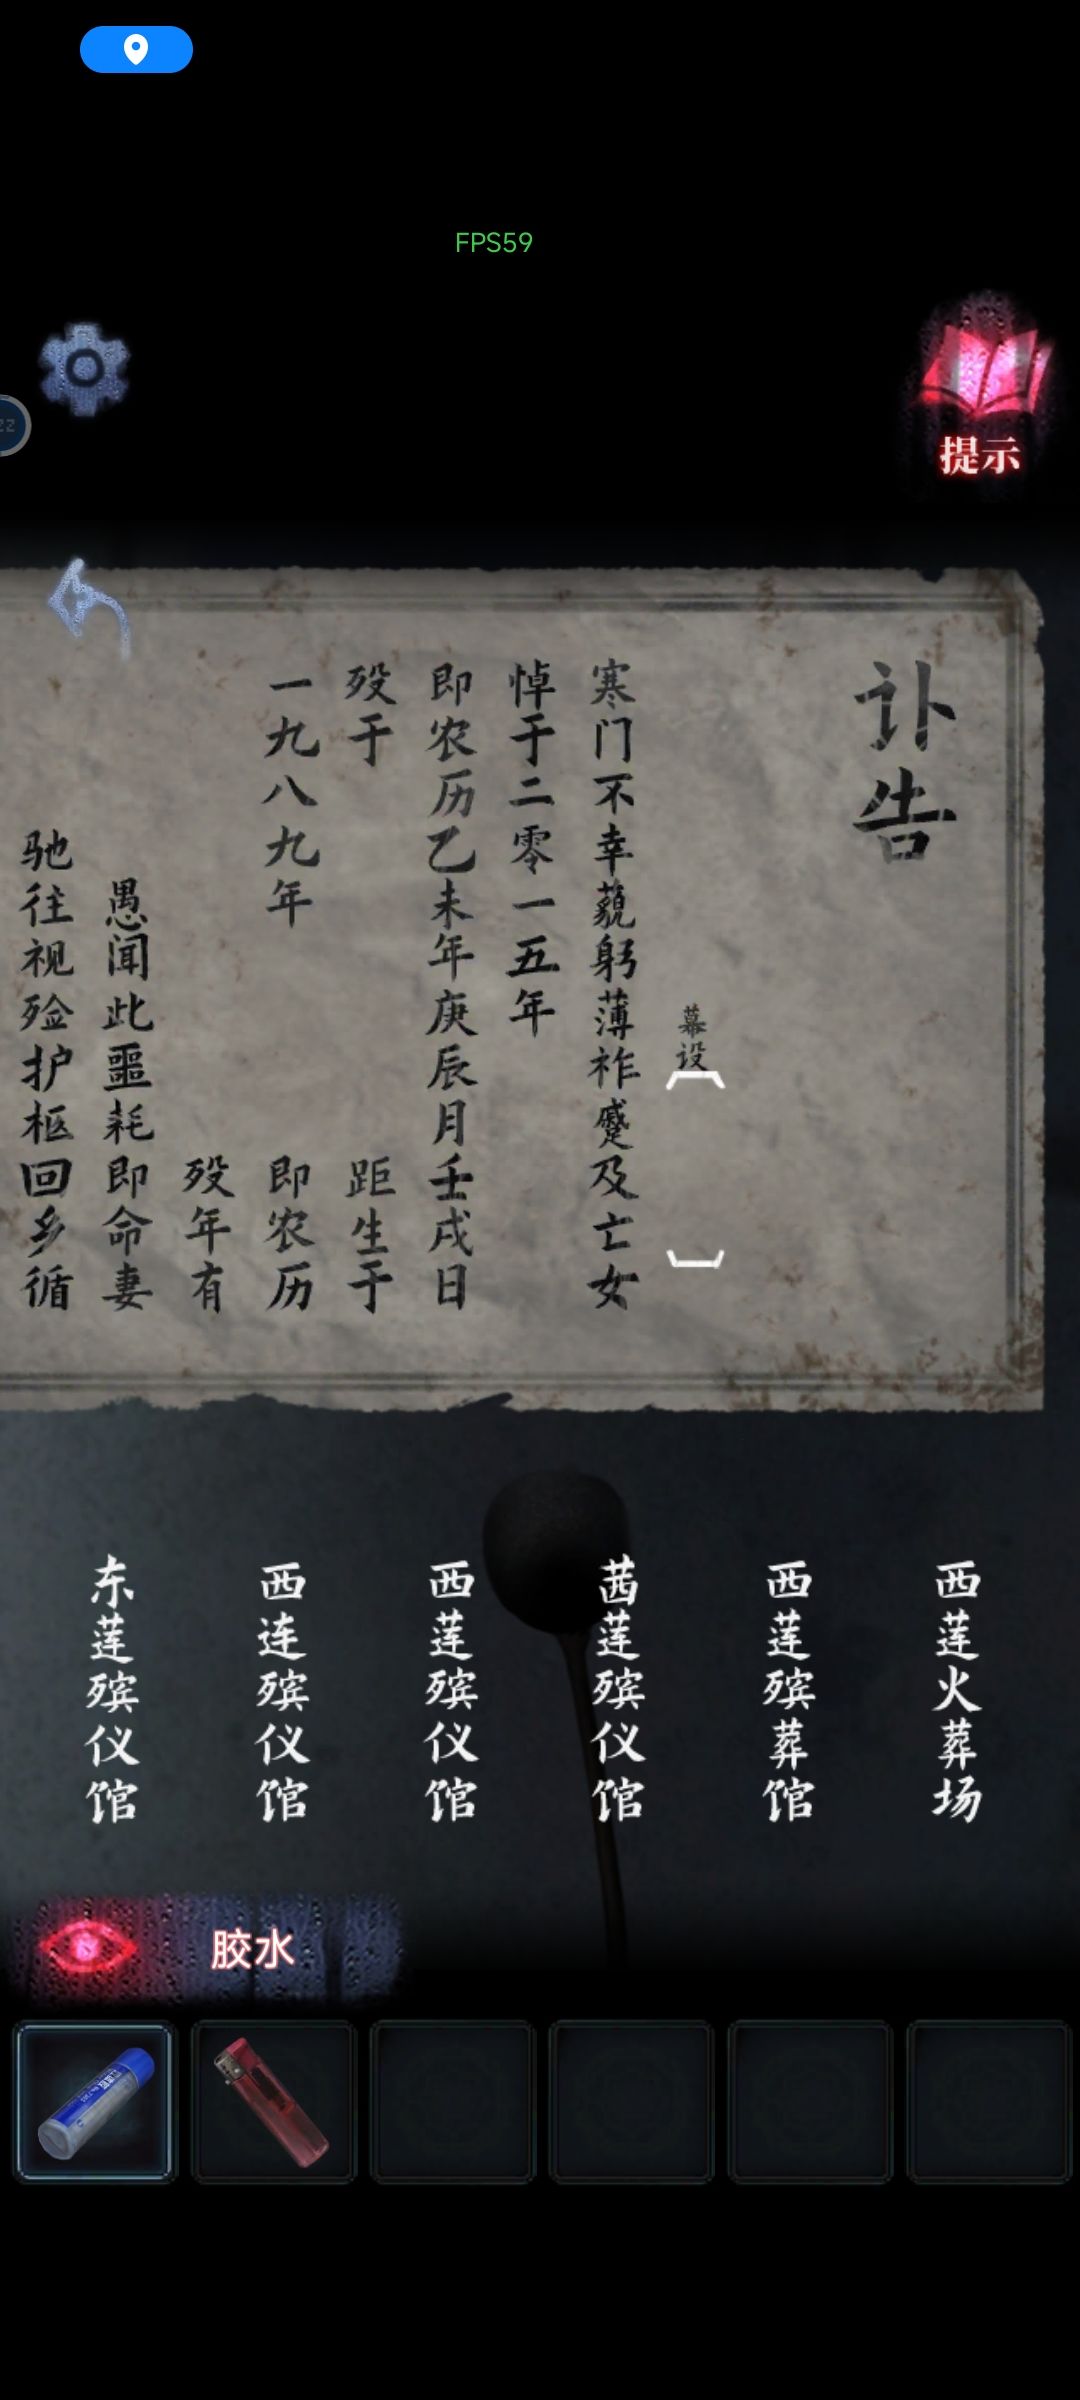 FPS59
22
提示
讣告
幕设
寒门不幸藐躬薄祚蹙及亡女
悼于二零一五年
即农历乙未年庚辰月壬戌日
殁于
距生于
一九八九年
即农历
殁年有
愚闻此噩耗即命妻
驰往视殓护柩回乡循
西莲火葬场
西莲殡葬馆
茜莲殡仪馆
西莲殡仪馆
西连殡仪馆
东莲殡仪馆
胶水